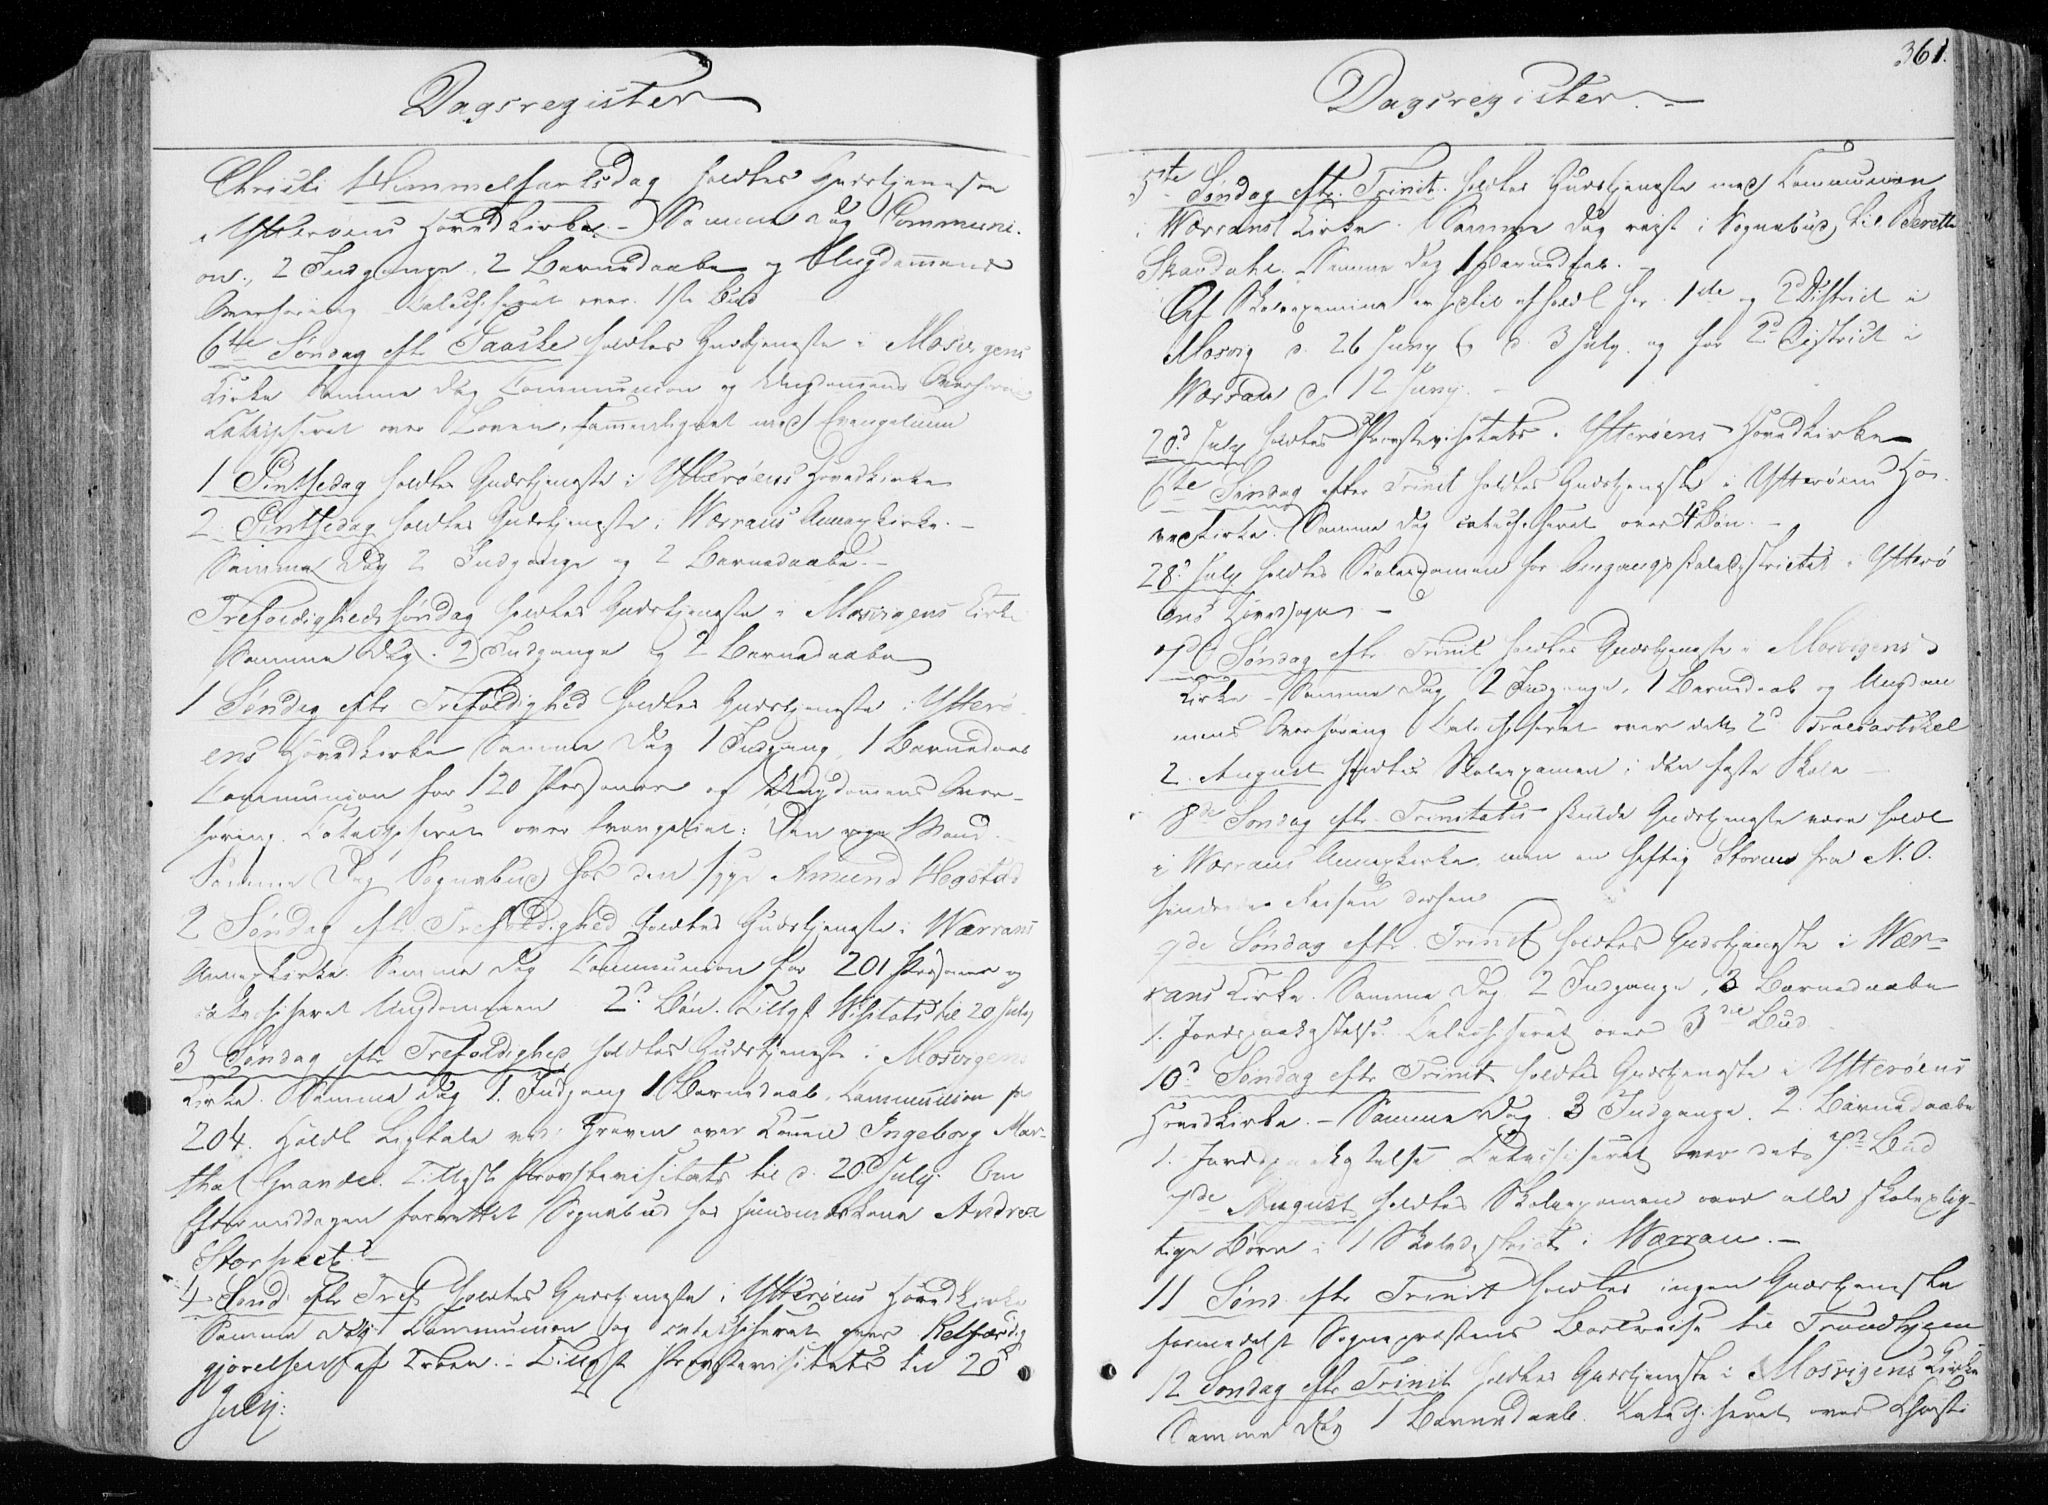 Dagsregister
Christi Himmelfartsdag holdtes Gudstjeneste
i Ytterøens Hovedkirke. - Samme Dag Communi-
on, 2 Indgange, 2 Barnedaabe og Ungdommens
Overhøring Catechiseret over 1ste Bud
6te Søndag eftr Paaske holdtes Gudstjeneste i Mosvigens
Kirke Samme Dag Communion og Ungdommens Overhøring
Catechiseret over Loven, sammenlignet med Evangelium
1 Pintsedag holdtes Gudstjeneste i Ytterøens Hovedkirke
2. Pintsedag holdtes Gudstjeneste i Værrans Annexkirke. -
Samme Dag 2 Indgange og 2 Barnedaabe. -
Trefoldighedssøndag holdtes Gudstjeneste i Mosvigens Kirke
Samme Dag 2 Indgange og 2 Barnedaabe
1 Søndag eftr Trefoldighed holdtes Gudstjeneste i Ytterø-
ens Hovedkirke Samme Dag 1 Indgang, 1 Barnedaab
Communion for 120 Personer og Ungdommens Over-
høring. Catechiseret over Evangeliet: Den rige Mand. -
Samme Dag Sognebud hos den syge Amund Hegstad
2 Søndag eftr Trefoldighed holdtes Gudstjeneste i Værrans
Annexkirke. Samme Dag Communion for 201 Personer og
catechiseret Ungdommen 2d Bøn. Tillyst Visitats til 20 July
3 Søndag eftr Trefoldighed holdtes Gudstjeneste i Mosvigens
Kirke. Samme Dag 1. Indgang 1 Barnedaab, Communion for
204. Holdt Ligtale ved Graven over Konen Ingeborg Mar-
tha Grande. Tillyst Provstevisitats til d. 20d July. Om
Eftermiddagen forrettet Sognebud hos Huusmandskone Andrea
4 Sønd: eftr Tref. holdtes Gudstjeneste i Ytterøens Hovedkirke
Samme Dag Communion og catechiseret over Retfærdig
gjørelsen af Troen. - Tillyst Provstevisitats til 20d
July.
361.
Dagsregister. -
5te Søndag eftr. Trinit. holdtes Gudstjeneste med Communion
i Værrans Kirke. Samme Dag reist i Sognebud til Berette
Skavdahl. Samme Dag 1 Barnedaab. -
Af Skoleexamina er holdt for 1ste og 2d District i
Mosvig d. 26 Juny & d. 3 July. og for 2d District i
Værran d. 12 Juny. -
20d July holdtes Provstevisitats i Ytterøens Hovedkirke
6te Søndag efter Trinit holdtes Gudstjeneste i Ytterøens Ho-
vedkirke. Samme Dag catechiseret over 4d Bøn. -
28d July holdtes Skoleexamen for Omgangsskoledistrictet i Ytterø
ens Hovedsogn. -
7de Søndag eftr. Trinit holdtes Gudstjeneste i Mosvigens
Kirke - Samme Dag 2 Indgange, 1 Barnedaab og Ungdom
mens Overhøring Catechiseret over dett 2d Troesartikel
2. August holdtes Skoleexamen i den faste Skole -
8de Søndag eftr. Trinitatis skulde Gudstjeneste være holdt
i Værrans Annexkirke, men en heftig Storm fra N.O.
hindrede Reisen derhen
9de Søndag eftr. Trinit holdtes Gudstjeneste i Vær-
rans Kirke. Samme Dag 2 Indgange, 3 Barnedaabe
1. Jordpaakastelse. Catechiseret over 3die Bud
10d Søndag eftr Trinit holdtes Gudstjeneste i Ytterøens
Hovedkirke. - Samme Dag. 3 Indgange. 2. Barnedaabe
1. Jordpaakastelse Catechiseret over det 7d Bud
7de August holdtes Skoleexamen over alle skoleplig-
tige Børn i 1 Skoledistrict i Værran. -
11 Sønd. eftr Trinit holdtes ingen Gudstjeneste
formedelst Sognepræstens Bortreise til Trondhjem
12 Søndag eftr Trinit holdtes Gudstjeneste i Mosvigens Kirke
Samme Dag 1 Barnedaab. Catechiseret over Christi